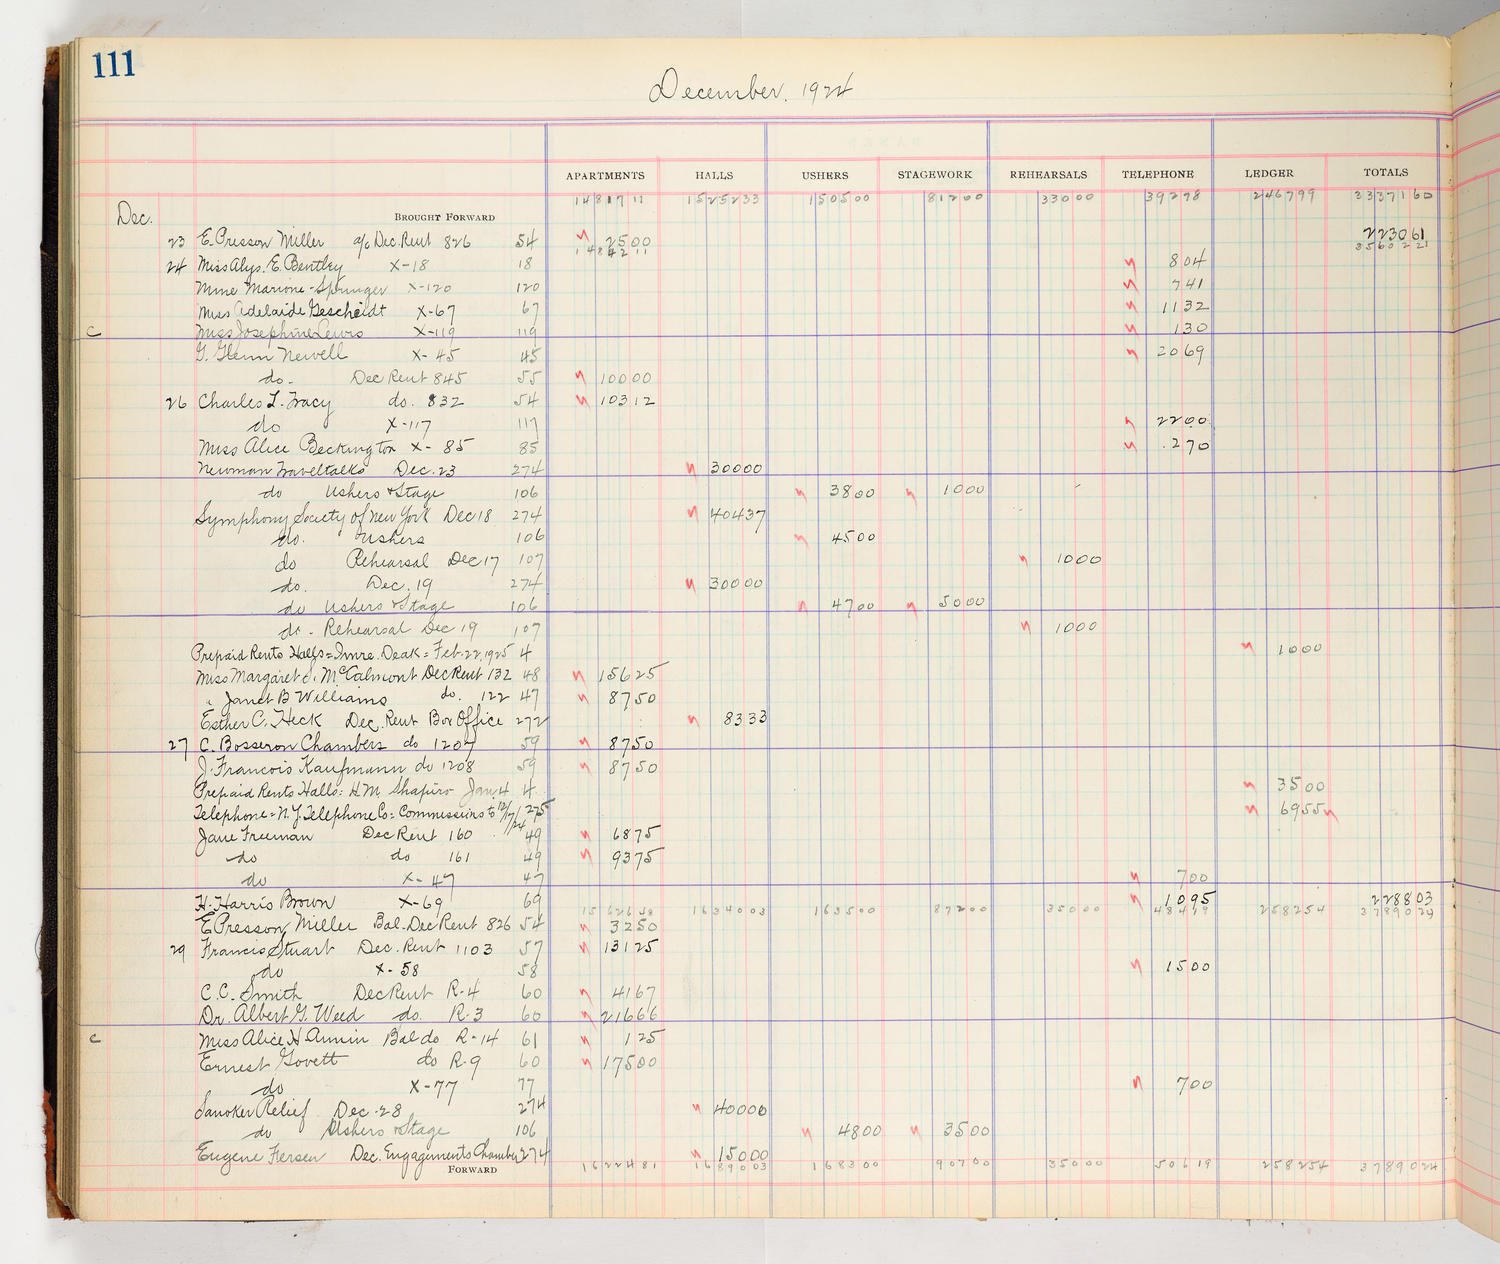 111
December. 1924
APARTMENTS HALLS USHERS STAGEWORK REHEARSALS TELEPHONE LEDGER TOTALS
1481711 1525233 150500 81200 33000 39278 246799 2337160
Dec.
BROUGHT FORWARD
23 E. Presson Miller a/c Dec. Rent 826 54 2500 223061
1484211 3560221
24 Miss Alys. E. Bentley X-18 18 804
Mme Marione-Springer X-120 120 741
Miss Adelaide Gescheidt X-67 67 1132
C Miss Josephine Lewis X-119 119 130
G. Glenn Newell X-45 45 2069
do. Dec Rent 845 55 10000
26 Charles L. Tracy do. 832 54 10312
do X-117 117 2200
Miss Alice Beckington X-85 85 270
Newman Traveltalks Dec. 23 274 30000
do Ushers & Stage 106 3800 1000
Symphony Society of New York Dec 18 274 40437
do. Ushers 106 4500
do Rehearsal Dec 17 107 1000
do. Dec. 19 274 30000
do Ushers & Stage 106 4700 5000
do. Rehearsal Dec 19 107 1000
Prepaid Rents Halls = Imre. Deak = Feb-22, 1925 4 1000
Miss Margaret J. McCalmont Dec Rent 132 48 15625
" Janet B Williams do. 122 47 8750
Esther C. Heck Dec. Rent Box Office 272 8333
27 C. Bosseron Chambers do 1207 59 8750
J. Francois Kaufmann do 1208 59 8750
Prepaid Rents Halls: H.M. Shapiro Jan. 4 4 3500
Telephone = N.Y. Telephone Co = Commissions to 12/17/24 275 6955
Jane Freeman Dec Rent 160 49 6875
do do 161 49 9375
do X-47 47 700
H. Harris Brown X-69 69 1095 228803
1562658 1634003 163500 87200 35000 48419 258254 3789024
E Presson Miller Bal. Dec Rent 826 54 3250
29 Francis Stuart Dec. Rent 1103 57 13125
do X-58 58 1500
C.C. Smith Dec Rent R-4 60 4167
Dr. Albert G. Weed do. R-3 60 21666
C Miss Alice H Annin Bal do R-14 61 125
Ernest Govett do R-9 60 17500
do X-77 77 700
Relief Dec-28 274 40000
do Ushers & Stage 106 4800 3500
Eugene Fersen Dec. Engagements Chamber 274 15000
FORWARD 1622481 1689003 168300 90700 35000 50619 258254 3789024